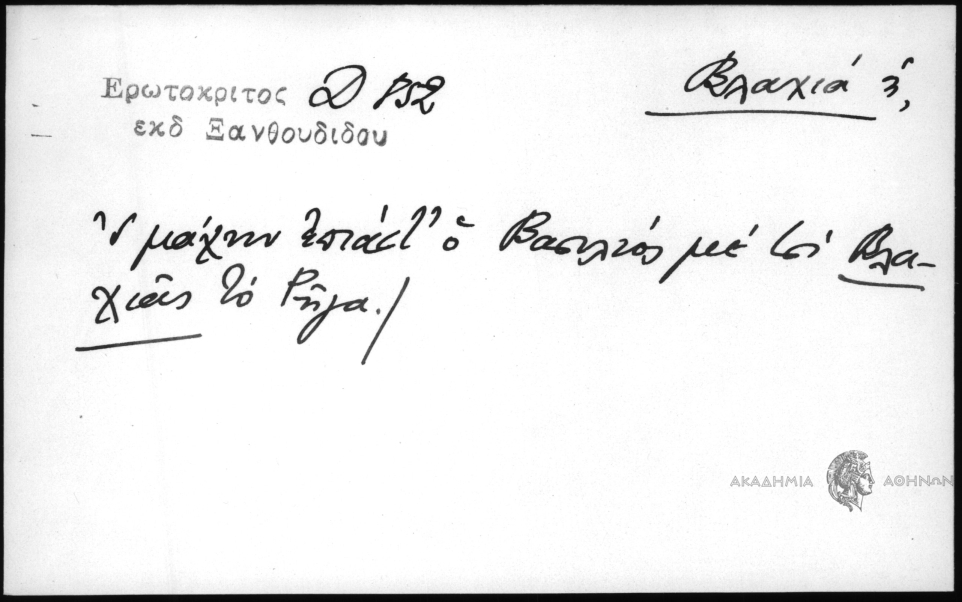 Ερωτοκριτος D 852
εκδ Ξανθουδιδου
Βλαχιά ἡ,
μάχην ἐπιάστ' ὁ Βασιλιός μέ τσί Βλα-
χιᾶς τό Ρήγα./
ΑΚΑΔΗΜΙΑ ΑΘΗΝΩΝ